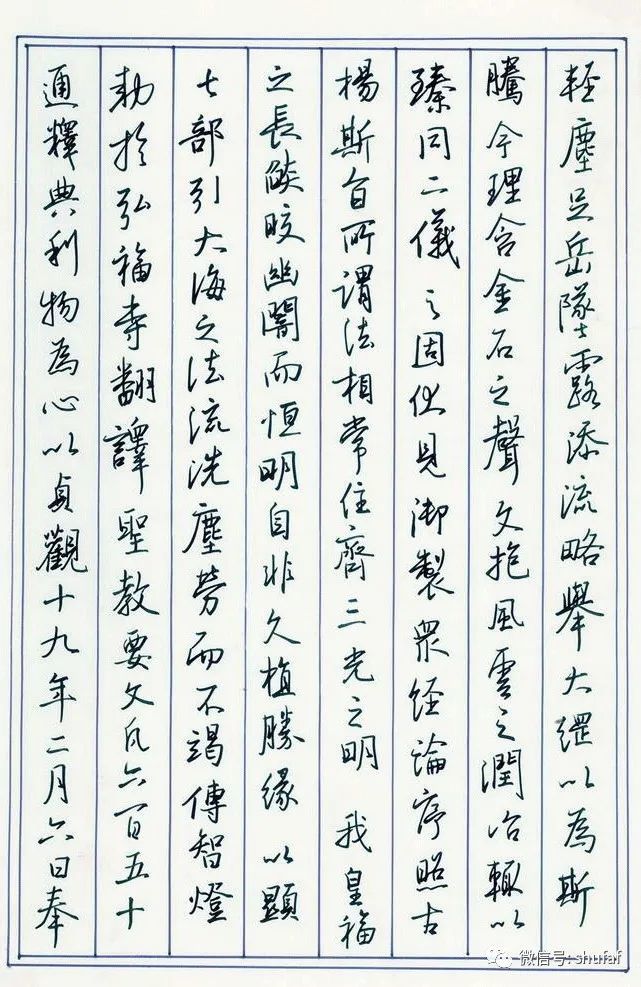 通釋典利物為心以貞觀十九年二月六日奉
勅於弘福寺翻譯聖教要文凡六百五十
七部引大海之法流洗塵勞而不竭傳智燈
之長燄皎幽闇而恒明自非久植勝緣以顯
揚斯旨所謂法相常住齊三光之明 我皇福
臻同二儀之固伏見御製眾経論序照古
騰今理含金石之聲文抱風雲之潤治輒以
輕塵足岳墜露添流略舉大綱以為斯
微信号: shufaf